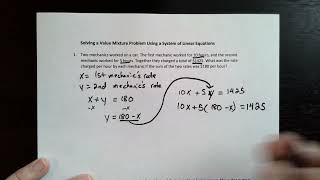 Solving a Value Mixture Problem Using a System of Linear Equations
1. Two mechanics worked on a car. The first mechanic worked for 10 hours, and the second
mechanic worked for 5 hours. Together they charged a total of $1425. What was the rate
charged per hour by each mechanic if the sum of the two rates was $180 per hour?
x = 1st mechanic's rate
y = 2nd mechanic's rate
x + y = 180
-x -x
y = 180 - x
10x + 5y = 1425
10x + 5(180 - x) = 1425